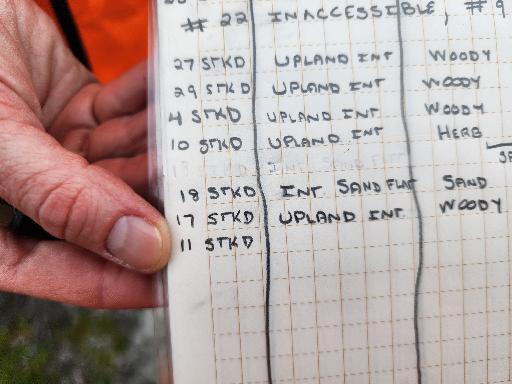 # 22 INACCESSIBLE, # 9
27 STKD UPLAND INT WOODY
29 STKD UPLAND INT WOODY
4 STKD UPLAND INT WOODY
10 STKD UPLAND INT HERB
18 STKD INT SAND FLAT SAND
17 STKD UPLAND INT WOODY
11 STKD